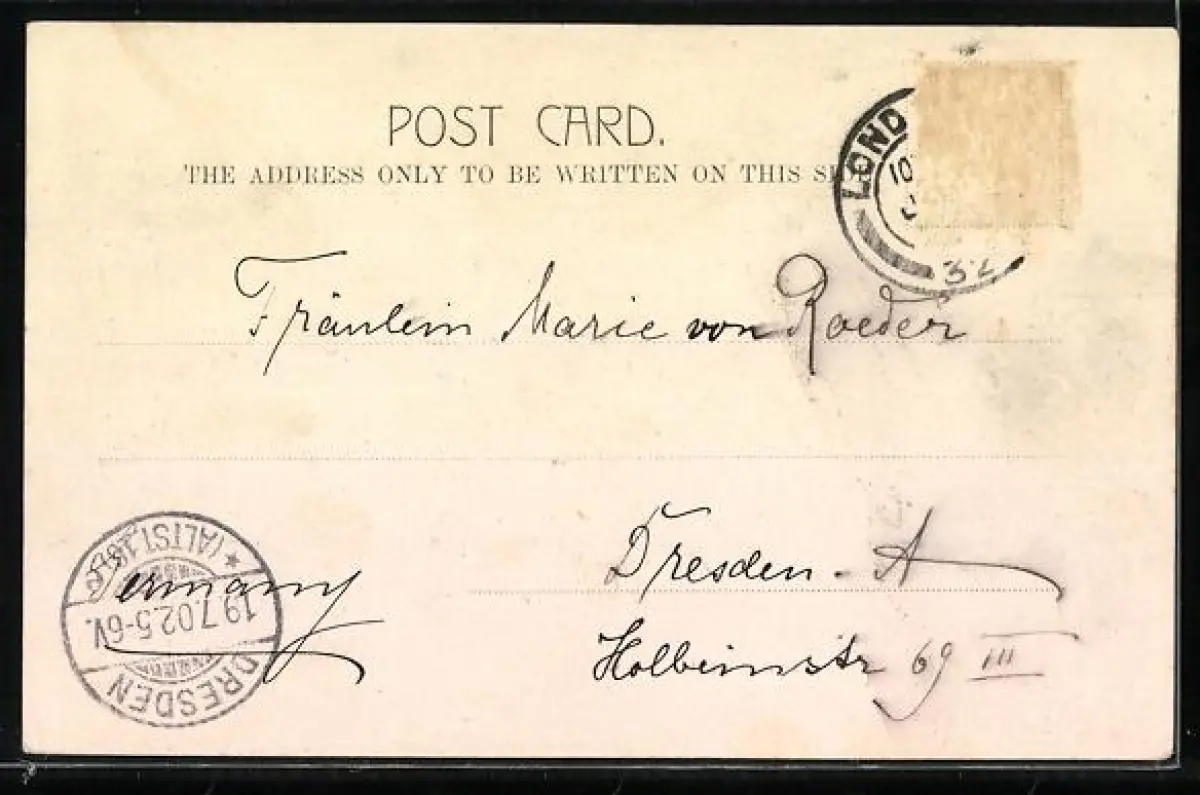 POST CARD.
THE ADDRESS ONLY TO BE WRITTEN ON THIS
LOND
10
32
Fräulein Marie von Roeder
Dresden-A
Holbeinstr 69 III
Germany
DRESDEN
19.7.02.5-6V.
* (ALTST.)